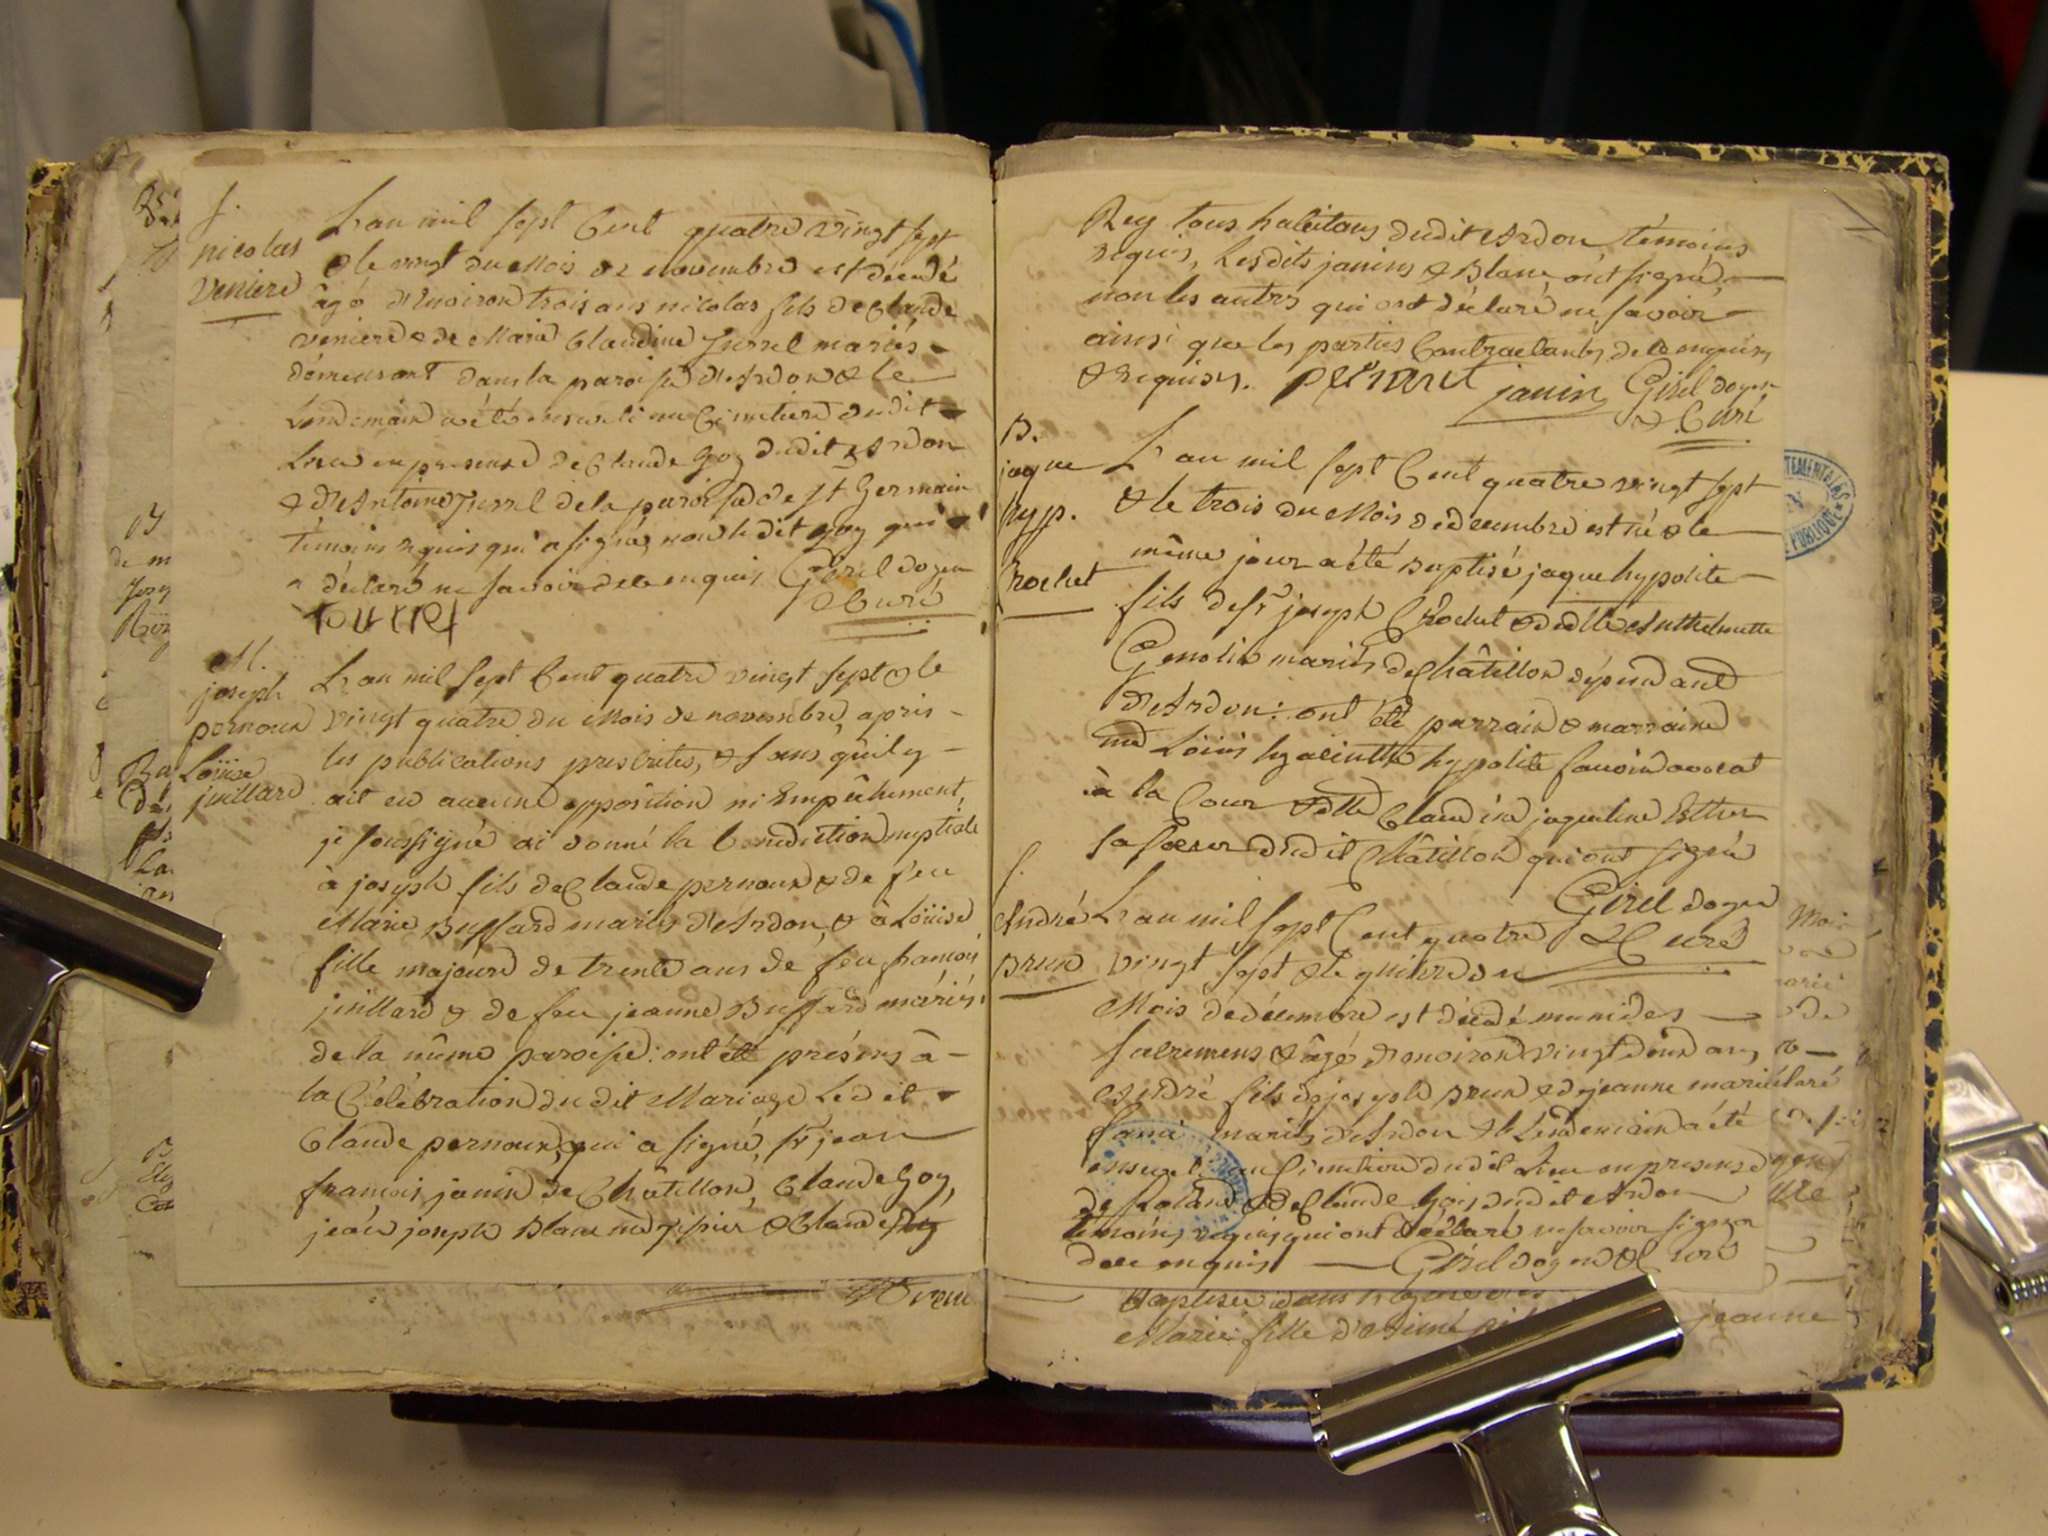 f.
nicolas
veniere
L'an mil sept Cent quatre vingt sept
& le vingt du Mois de novembre est decedé
âgé d'Environ trois ans nicolas fils de Claude
veniere & de Marie Claudine Jurrel mariés
démeurant dans la paroisse d'Ardon & le
Lendemain a été enseveli au Cimetiere dudit
Lieu en presence de Claude Goy dudit Ardon
& d'Antoine Jurrel de la paroisse de St Germain
témoins requis qui a signé, non ledit goy qui
a déclaré ne savoir de ce enquis Girel doyen
& Curé
M.
joseph
pernoux
Loüise
juillard
L'an mil Sept Cent quatre vingt sept & le
vingt quatre du Mois de novembre, après
les publications prescrites, & sans qu'il y
ait eu aucune opposition ni Empêchement,
je soussigné ai donné la benediction nuptiale
à joseph fils de Claude pernoux & de feu
Marie Buffard mariés d'Ardon, & à Loüise
fille majeure de trente ans de feu francois
juillard & de feu jeanne Buffard mariés
de la même paroisse: ont été présens à
la Célébration dudit Mariage Ledit
Claude pernoux, qui a signé, Sr jean
francois janin de Châtillon, Claude Goy,
jean joseph Blanc & Claude Rey
Rey tous habitans dudit Ardon témoins
requis, Lesdits janins & Blanc ont signé,
non les autres qui ont déclaré ne savoir
ainsi que les parties Contractantes de ce enquises
& requises. pernout janin Girel doyen
& Curé
B.
jaque
hyp.
Crochet
L'an mil sept Cent quatre vingt sept
& le trois du Mois de decembre est né & le
même jour a été Baptisé jaque hypolite
fils de Sr joseph Crochet & de dlle Anthelmette
Genolin mariés de Châtillon dépendant
d'Ardon: ont été parrain & marraine
Loüis hyacinthe hypolite avocat
à la Cour & dlle Claudine jaqueline Esther
sa soeur dudit Châtillon qui ont signé
Girel doyen
& Curé
f.
André
Brun
L'an mil sept Cent quatre
vingt sept & le du
Mois de decembre est décedé muni des
sacremens & âgé d'environ vingt deux ans
André fils de joseph Brun & de jeanne marie
mariés d'Ardon & le Lendemain a été
enseveli au Cimetiere dudit Lieu en presence
de Roland & de Claude Goy dudit Ardon
témoins requis qui ont déclaré ne savoir signer
de ce enquis Girel doyen & Curé
Marie fille d'Aimé jeanne